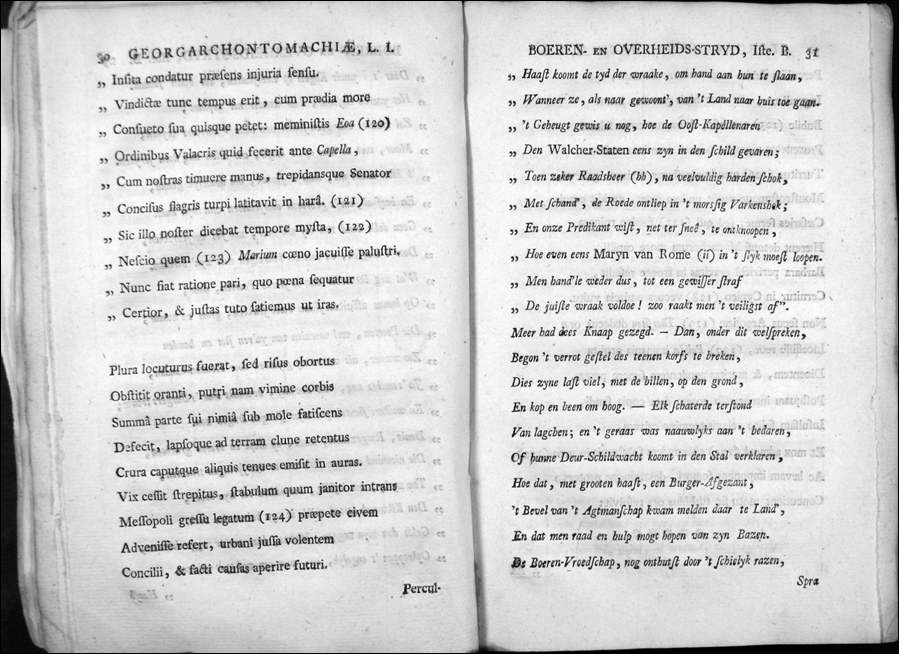 30 GEORGARCHONTOMACHIÆ, L. I.
„ Inſita condatur præſens injuria ſenſu.
„ Vindictæ tunc tempus erit, cum prædia more
„ Conſueto ſua quisque petet: meminiſtis Eoa (120)
„ Ordinibus Valacris quid fecerit ante Capella,
„ Cum noſtras timuere manus, trepidansque Senator
„ Conciſus flagris turpi latitavit in harâ. (121)
„ Sic illo noſter dicebat tempore myſta, (122)
„ Neſcio quem (123) Marium cœno jacuiſſe paluſtri.
„ Nunc fiat ratione pari, quo pœna ſequatur
„ Certior, & juſtas tuto ſatiemus ut iras.
Plura locuturus fuerat, ſed riſus obortus
Obſtitit oranti, putri nam vimine corbis
Summâ parte ſui nimiâ ſub mole fatiſcens
Defecit, lapſoque ad terram clune retentus
Crura caputque aliquis tenues emiſit in auras.
Vix ceſſit ſtrepitus, ſtabulum quum janitor intrans
Meſſopoli greſſu legatum (124) præpete civem
Adveniſſe refert, urbani juſſa volentem
Concilii, & facti cauſas aperire futuri.
Percul-
BOEREN- EN OVERHEIDS-STRYD, Iſte. B. 31
„ Haaſt koomt de tyd der wraake, om hand aan hun te ſlaan,
„ Wanneer ze, als naar gewoont', van 't Land naar huis toe gaan.
„ 't Geheugt gewis u nog, hoe de Ooſt-Kapéllenaren
„ Den Walcher-Staten eens zyn in den ſchild gevaren;
„ Toen zeker Raadsheer (hh), na veelvuldig harden ſchok,
„ Met ſchand', de Roede ontliep in 't morsſig Varkenshok;
„ En onze Predikant wiſt, net ter ſneê, te ontknoopen,
„ Hoe even eens Maryn van Rome (ii) in 't ſlyk moeſt loopen.
„ Men hand'le weder dus, tot een gewiſſer ſtraf
„ De juiſte wraak voldoe! zoo raakt men 't veiligst af”.
Meer had dees Knaap gezegd. — Dan, onder dit welſpreken,
Begon 't verrot geſtel des teenen korfs te breken,
Dies zyne laſt viel, met de billen, op den grond,
En kop en been om hoog. — Elk ſchaterde terſtond
Van lagchen; en 't geraas was naauwlyks aan 't bedaren,
Of hunne Deur-Schildwacht koomt in den Stal verklaren,
Hoe dat, met grooten haaſt, een Burger-Afgezant,
't Bevel van 't Agtmanſchap kwam melden daar te Land,
En dat men raad en hulp mogt hopen van zyn Bazen.
De Boeren-Vroedſchap, nog onthutſt door 't ſchielyk razen,
Spra